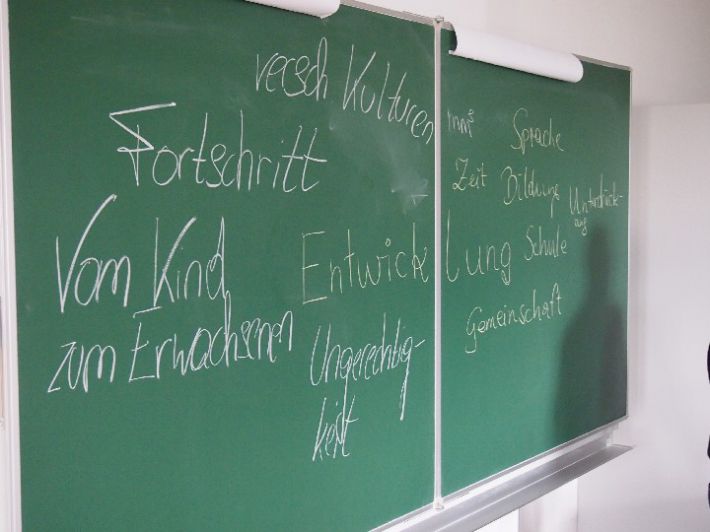 versch Kulturen
Fortschritt
Vom Kind
zum Erwachsenen
Entwicklung
Ungerechtig-
keit
Sprache
Zeit Bildung
Unterdrück-
ung
Schule
Gemeinschaft